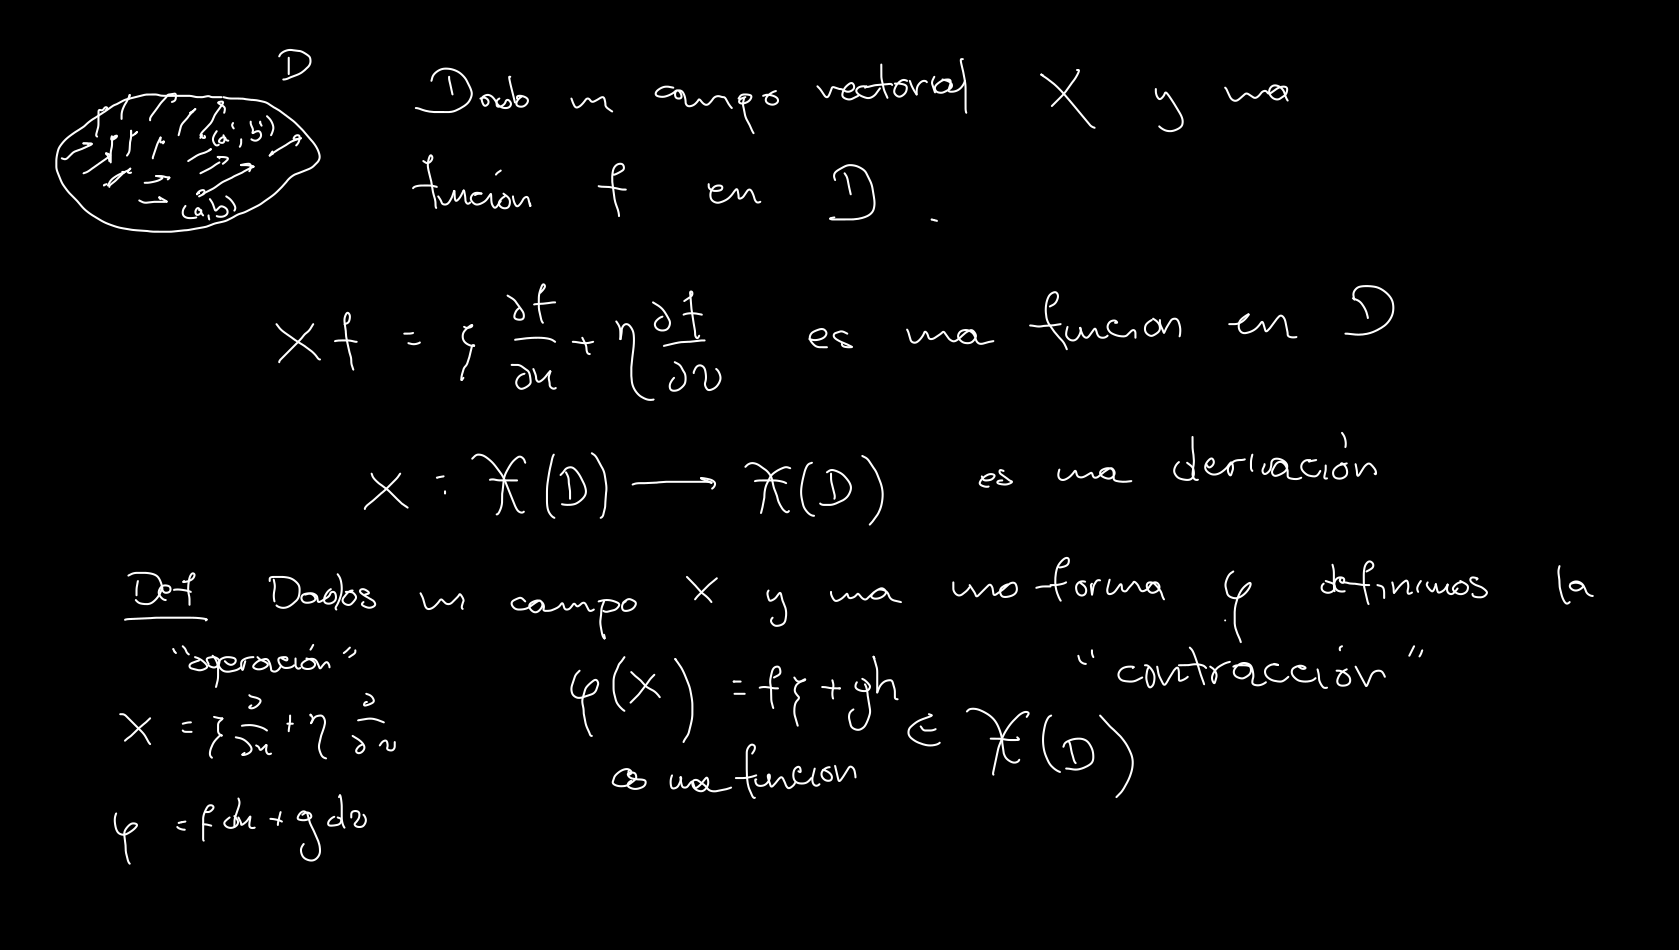 D
(a', b')
(a,b)
Dado un campo vectorial X y una
función f en D.
Xf = ξ ∂f/∂u + η ∂f/∂v es una funcion en D
X : 𝔛(D) ⟶ 𝔛(D) es una derivación
Def Dados un campo X y una uno forma φ definimos la
"operación" "contracción"
φ(X) = fξ + gη ∈ 𝔛(D)
X = ξ ∂/∂u + η ∂/∂v
es una funcion
φ = f du + g dv